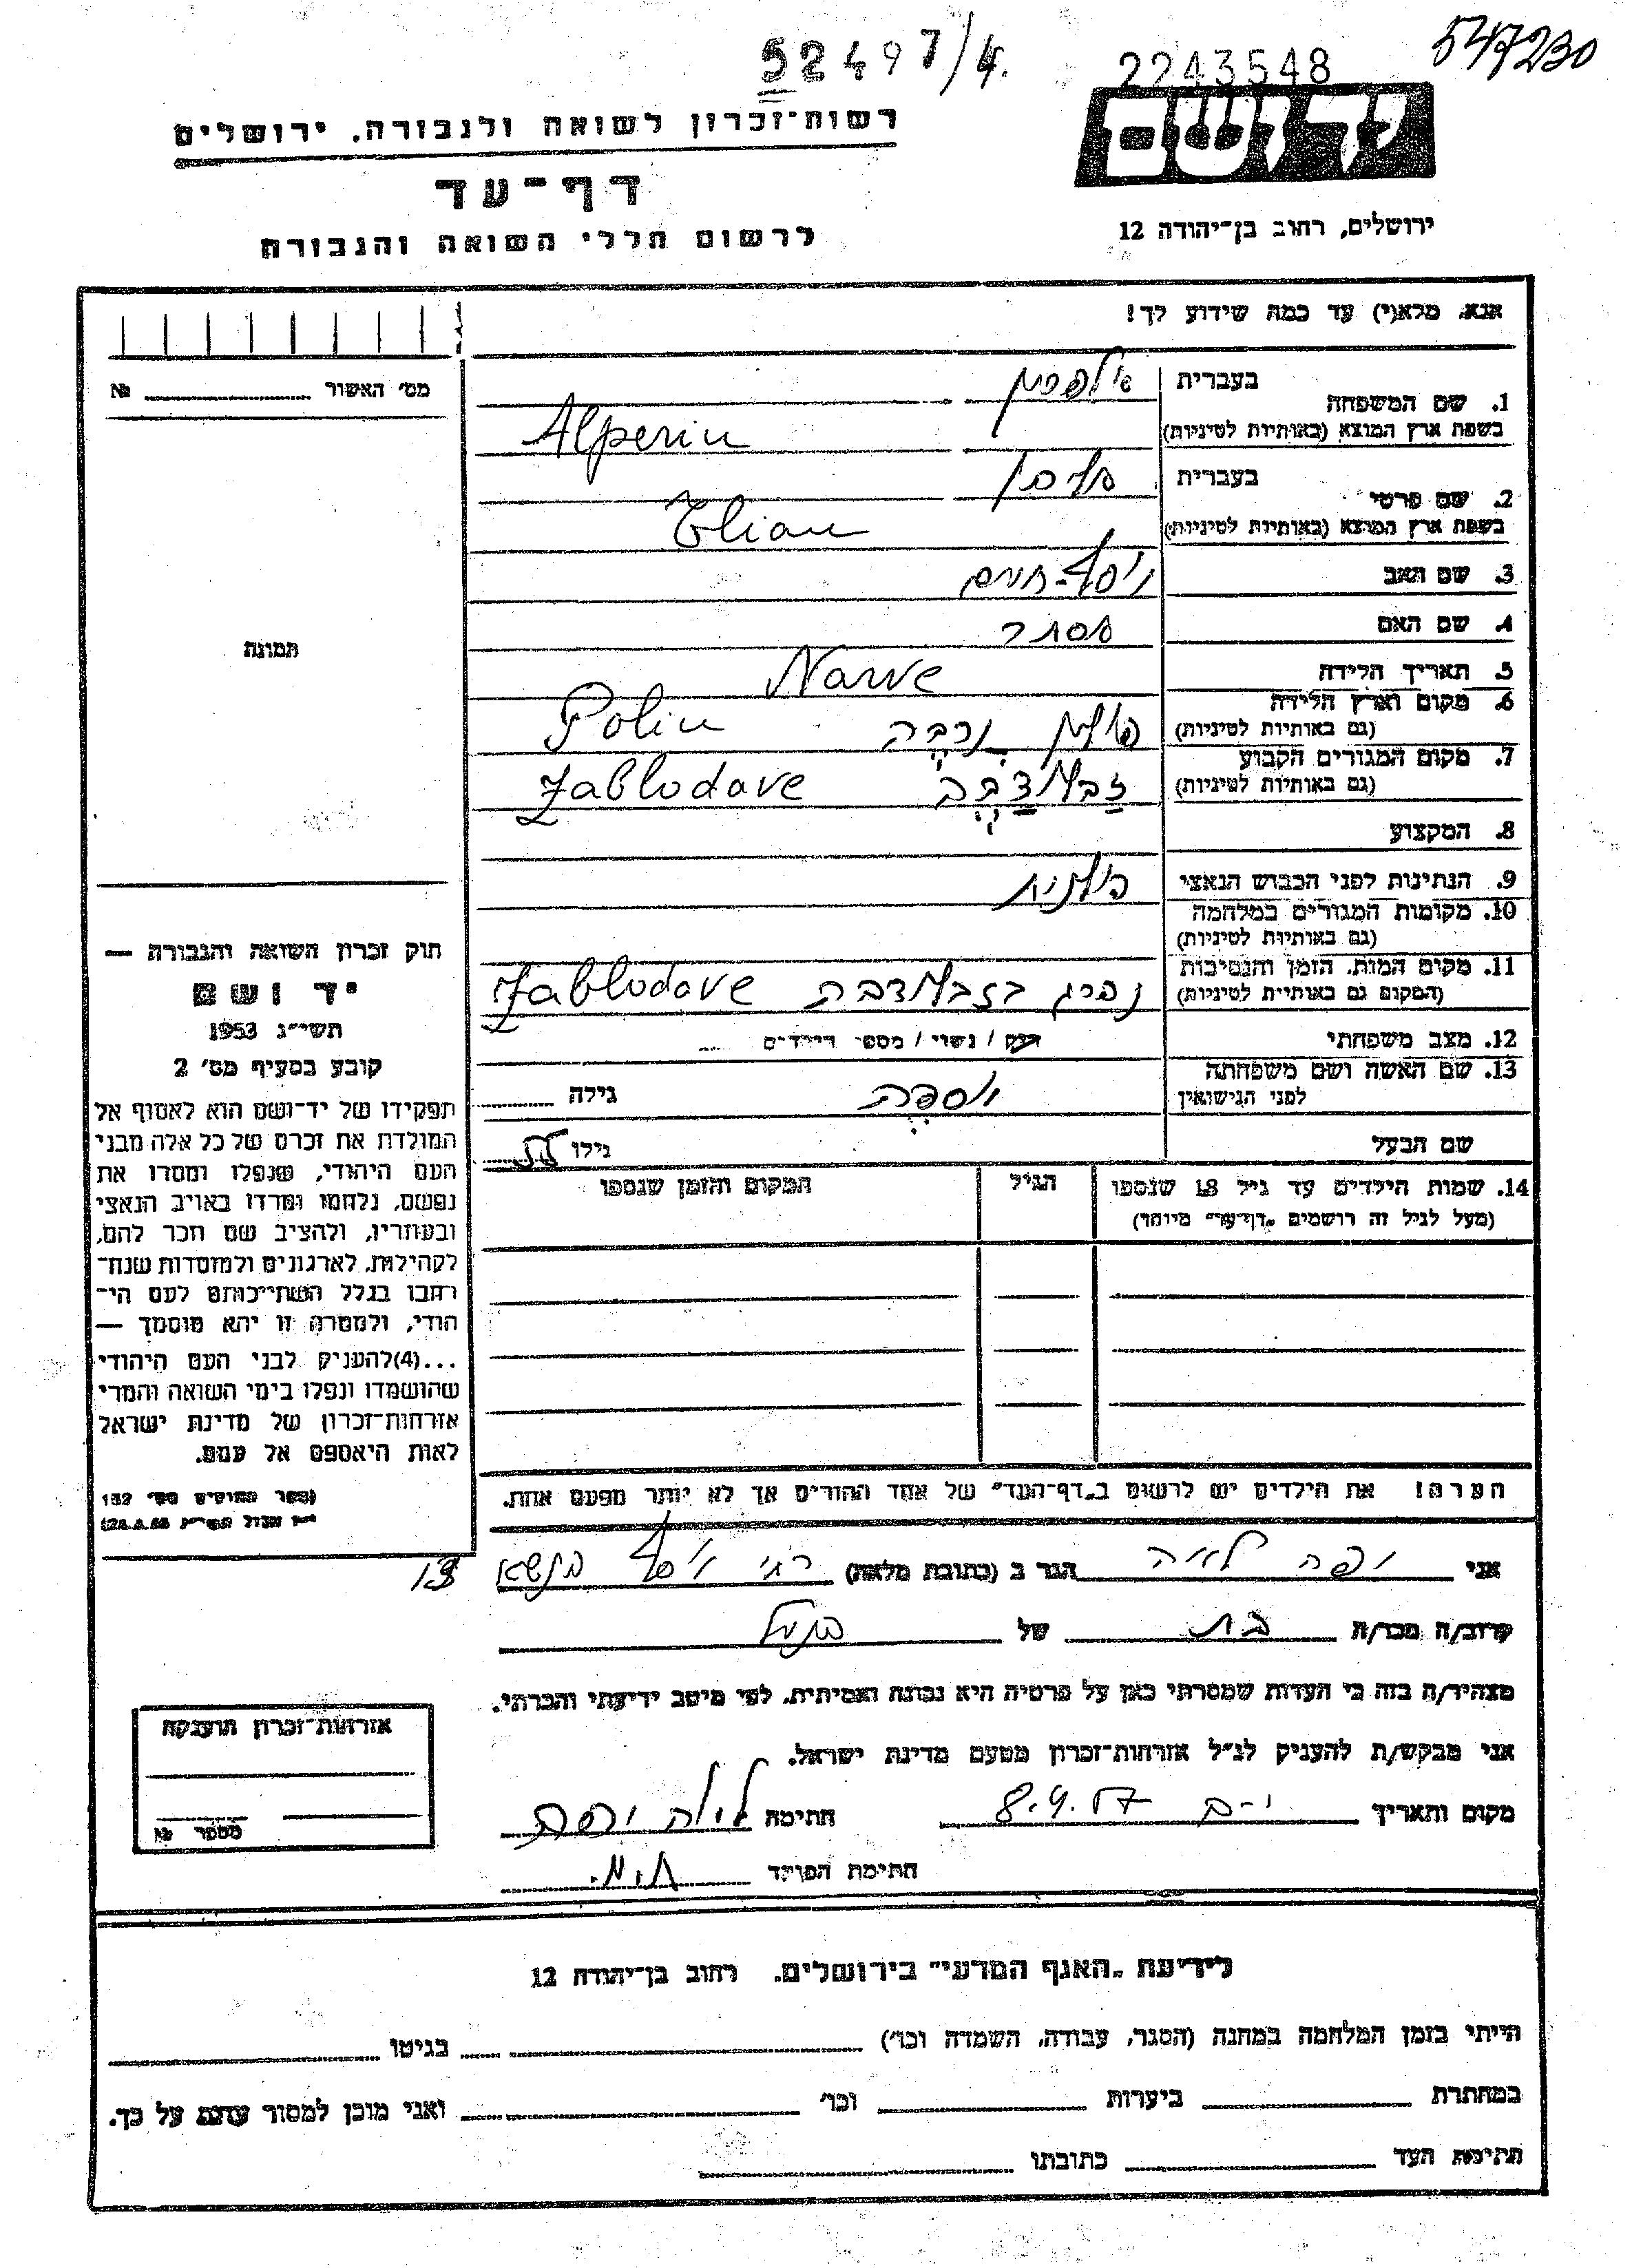 52497/4.
2243548
547230
יד ושם
רשות־זכרון לשואה ולגבורה, ירושלים
דף־עד
לרשום חללי השואה והגבורה
ירושלים, רחוב בן־יהודה 12
אנא, מלא(י) עד כמה שידוע לך!
מס' האשור № 
1. שם המשפחה
בעברית
בשפת ארץ המוצא (באותיות לטיניות) Alperin
2. שם פרטי
בעברית
בשפת ארץ המוצא (באותיות לטיניות) Elian
3. שם האב יוסף-חיים
4. שם האם אסתר
5. תאריך הלידה
Narve
6. מקום וארץ הלידה
(גם באותיות לטיניות) פולין נרבה Polin
7. מקום המגורים הקבוע
(גם באותיות לטיניות) זבלודבה Zablodave
8. המקצוע
9. הנתינות לפני הכבוש הנאצי פולנית
10. מקומות המגורים במלחמה
(גם באותיות לטיניות)
11. מקום המות, הזמן והנסיבות
(המקום גם באותיות לטיניות) נהרג בזבלודבה Zablodave
12. מצב משפחתי רוק / נשוי / מספר הילדים
13. שם האשה ושם משפחתה
לפני הנישואין גילה
שם הבעל גילו
14. שמות הילדים עד גיל 18 שנספו
(מעל לגיל זה רושמים „דף־עד" מיוחד)
הגיל
המקום והזמן שנספו
תמונה
חוק זכרון השואה והגבורה —
יד ושם
תשי"ג 1953
קובע בסעיף מס' 2
תפקידו של יד־ושם הוא לאסוף אל
המולדת את זכרם של כל אלה מבני
העם היהודי, שנפלו ומסרו את
נפשם, נלחמו ומרדו באויב הנאצי
ובעוזריו, ולהציב שם וזכר להם,
לקהילות, לארגונים ולמוסדות שנח־
רבו בגלל השתייכותם לעם הי־
הודי, ולמטרה זו יהא מוסמך —
...(4)להעניק לבני העם היהודי
שהושמדו ונפלו בימי השואה והמרי
אזרחות־זכרון של מדינת ישראל
לאות היאספם אל עמם.
(ספר החוקים מס' 132
הערה! את הילדים יש לרשום ב„דף־העד" של אחד ההורים אך לא יותר מפעם אחת.
אני יפה לאה הגר ב (כתובת מלאה) רבי יוסף 13
קרוב/ה מכר/ה בת של
מצהיר/ה בזה כי העדות שמסרתי כאן על פרטיה היא נכונה ואמיתית, לפי מיטב ידיעתי והכרתי.
אני מבקש/ת להעניק לנ"ל אזרחות־זכרון מטעם מדינת ישראל.
מקום ותאריך י-ם 8.4.57 חתימה
חתימת הפוקד
אזרחות־זכרון הוענקה
מספר №
לידיעת „האגף המדעי" בירושלים, רחוב בן־יהודה 12
הייתי בזמן המלחמה במחנה (הסגר, עבודה, השמדה וכו') בגיטו
במחתרת ביערות וכו' ואני מוכן למסור עדות על כך.
חתימת העד כתובתו